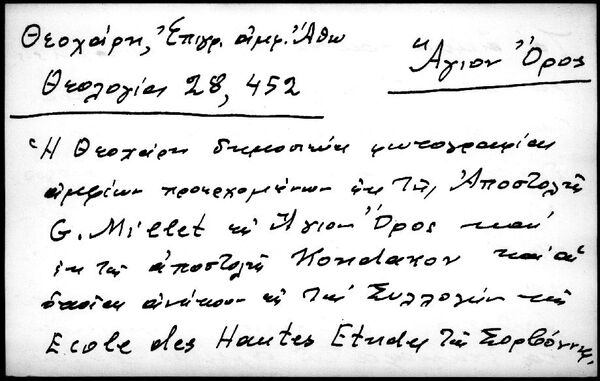 Θεοχάρη, Ἐπιγρ. ἀμφ. Ἄθω
Ἅγιον Ὄρος
Θεολογία 28, 452
Ἡ Θεοχάρη δημοσιεύει φωτογραφίαι
ἀμφίων προερχομένων ἐκ τῆς Ἀποστολῆς
G. Millet εἰς Ἅγιον Ὄρος καὶ
ἐκ τῆς ἀποστολῆς Kondakov καὶ αἱ
ὁποῖαι ἀνήκουν εἰς τὴν Συλλογὴν τῆς
Ecole des Hautes Etudes τῆς Σορβόννης.